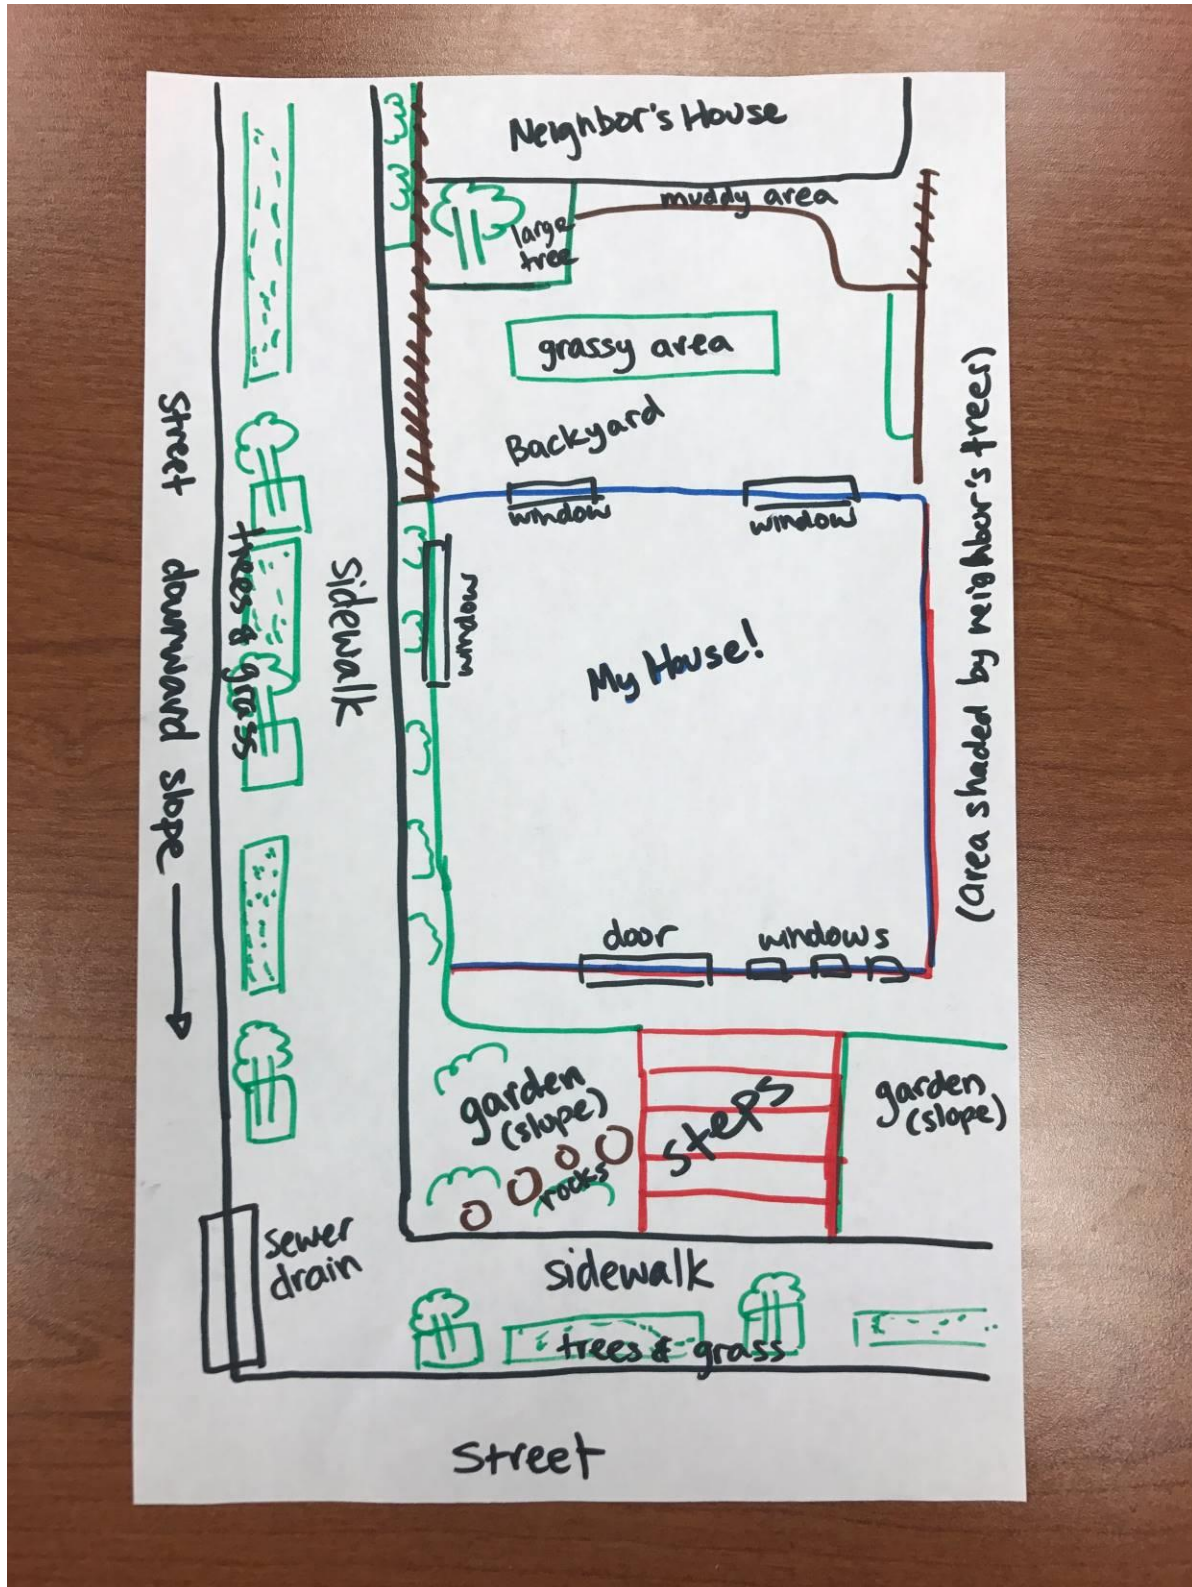 Neighbor's House
muddy area
large
tree
grassy area
Backyard
window
window
window
My House!
(area shaded by neighbor's trees)
Street downward slope
trees & grass
sidewalk
door
windows
garden
(slope)
rocks
steps
garden
(slope)
sewer
drain
sidewalk
trees & grass
Street